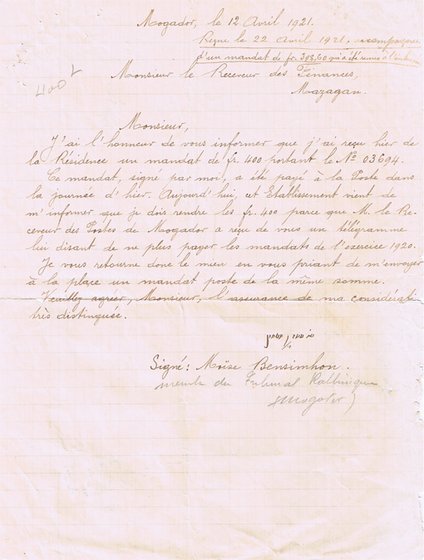 Mogador, le 12 Avril 1921.
Reçue le 22 Avril 1921, accompagnée
d'un mandat de fr. 398,60 qui a été remis à
Monsieur le Receveur des Finances,
Mazagan.
400
Monsieur,
J'ai l'honneur de vous informer que j'ai reçu hier de
la Résidence un mandat de fr. 400 portant le No 03694.
Ce mandat, signé par moi, a été payé à la Poste dans
la journée d'hier. Aujourd'hui, cet Etablissement vient de
m'informer que je dois rendre les fr. 400 parce que M. le Re-
ceveur des Postes de Mogador a reçu de vous un télégramme
lui disant de ne plus payer les mandats de l'exercice 1920.
Je vous retourne donc le mien en vous priant de m'envoyer
à la place un mandat poste de la même somme.
Veuillez agréer, Monsieur, l'assurance de ma considérati
très distinguée.
Signé: Moïse Bensimhon.
membre du Tribunal Rabbinique
(Mogador)